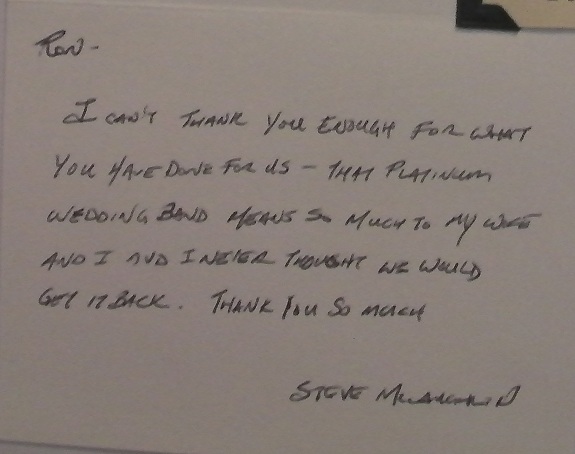 Ron -
I CAN'T THANK YOU ENOUGH FOR WHAT
YOU HAVE DONE FOR US - THAT PLATINUM
WEDDING BAND MEANS SO MUCH TO MY WIFE
AND I AND I NEVER THOUGHT WE WOULD
GET IT BACK. THANK YOU SO MUCH
STEVE